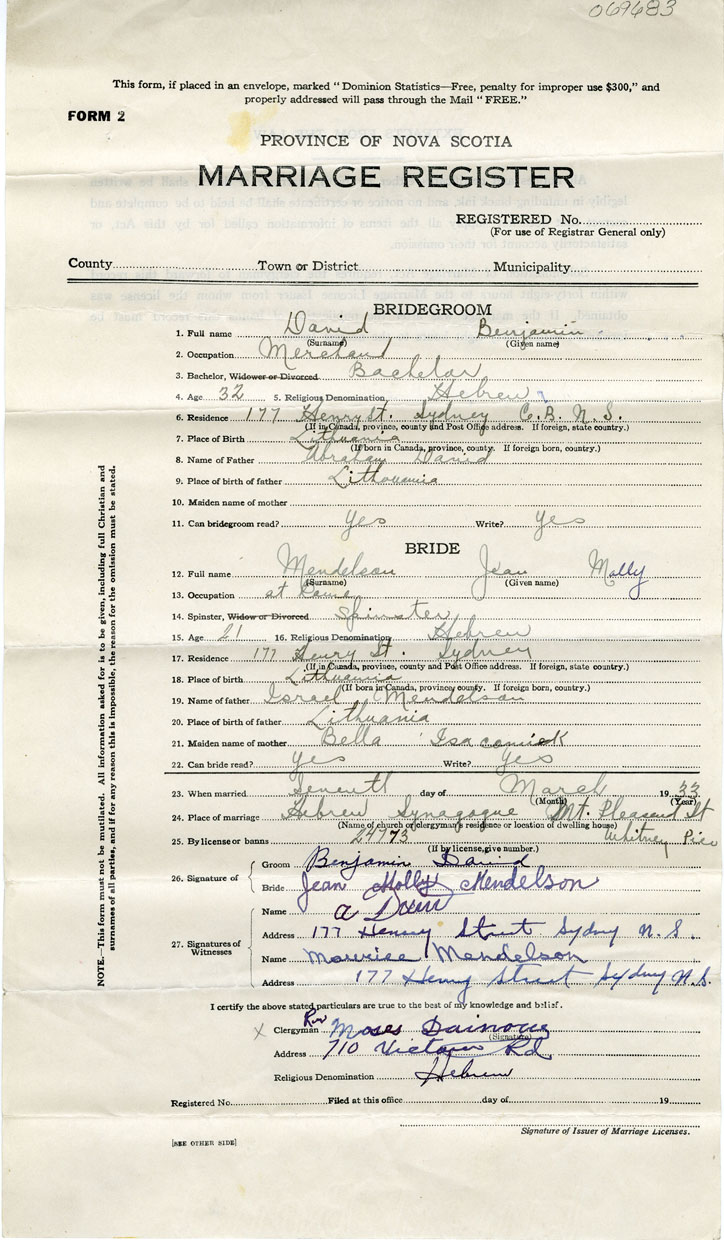 069683
This form, if placed in an envelope, marked "Dominion Statistics—Free, penalty for improper use $300," and
properly addressed will pass through the Mail "FREE."
FORM 2
PROVINCE OF NOVA SCOTIA
MARRIAGE REGISTER
REGISTERED No.
(For use of Registrar General only)
County Town or District Municipality
BRIDEGROOM
1. Full name David Benjamin
(Surname) (Given name)
2. Occupation Merchand
3. Bachelor, Widower or Divorced Bachelor
4. Age 32 5. Religious Denomination Hebrew
6. Residence 177 Henry St. Sydney C.B. N.S.
(If in Canada, province, county and Post Office address. If foreign, state country.)
7. Place of Birth Lithuania
(If born in Canada, province, county. If foreign born, country.)
8. Name of Father Abraham David
9. Place of birth of father Lithouania
10. Maiden name of mother
11. Can bridegroom read? Yes Write? Yes
BRIDE
12. Full name Mendelson Jean Molly
(Surname) (Given name)
13. Occupation at home
14. Spinster, Widow or Divorced Spinster
15. Age 21 16. Religious Denomination Hebrew
17. Residence 177 Henry St. Sydney
(If in Canada, province, county and Post Office address. If foreign, state country.)
18. Place of birth Lithuania
(If born in Canada, province, county. If foreign born, country.)
19. Name of father Israel Mendelson
20. Place of birth of father Lithuania
21. Maiden name of mother Bella
22. Can bride read? Yes Write? Yes
23. When married Seventh day of March 1933
(Month) (Year)
24. Place of marriage Hebrew Synagogue Mt. Pleasant St
(Name of church or clergyman's residence or location of dwelling house)
Whitney Pier
25. By license or banns 24773
(If by license, give number.)
26. Signature of
Groom Benjamin David
Bride Jean Molly Mendelson
27. Signatures of Witnesses
Name
Address 177 Henry Street Sydney N.S.
Name Maurice Mendelson
Address 177 Henry Street Sydney N.S.
I certify the above stated particulars are true to the best of my knowledge and belief.
x Clergyman Rev Moses
(Signature)
Address 710 Victoria Rd
Religious Denomination Hebrew
Registered No. Filed at this office day of 19
Signature of Issuer of Marriage Licenses.
[SEE OTHER SIDE]
NOTE.—This form must not be mutilated. All information asked for is to be given, including full Christian and
surnames of all parties, and if for any reason this is impossible, the reason for the omission must be stated.